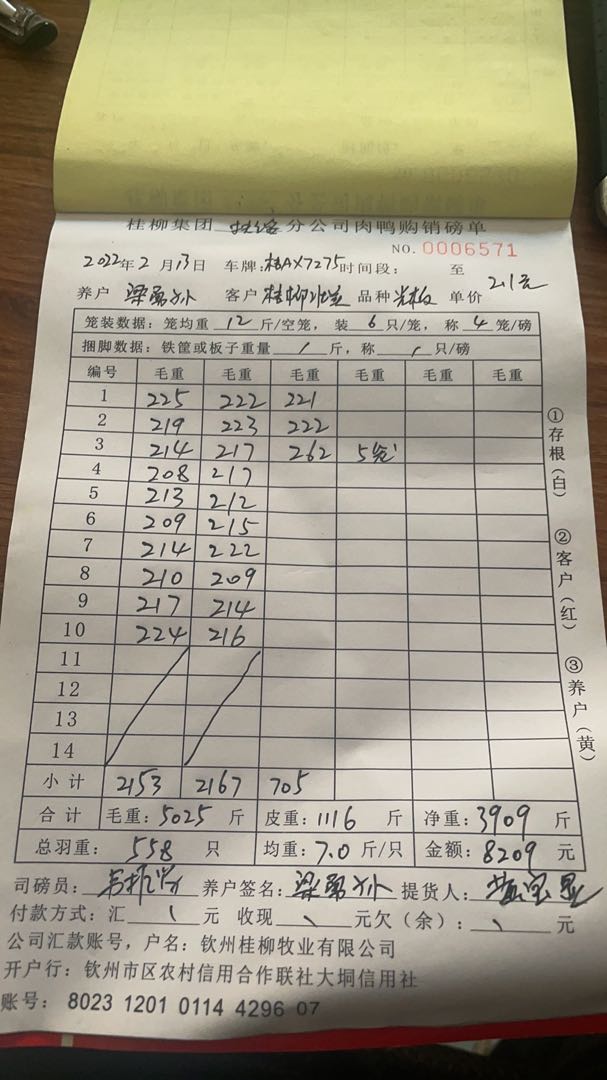 桂柳集团 分公司肉鸭购销磅单
NO. 0006571
2022年2月13日 车牌:桂AX7275 时间段: 至
养户 梁勇外 客户 桂柳 品种 光板 单价 2.1元
笼装数据: 笼均重 12 斤/空笼, 装 6 只/笼, 称 4 笼/磅
捆脚数据: 铁筐或板子重量 / 斤, 称 / 只/磅
编号 毛重 毛重 毛重 毛重 毛重 毛重
1 225 222 221
2 219 223 222
3 214 217 262 5笼
4 208 217
5 213 212
6 209 215
7 214 222
8 210 209
9 217 214
10 224 216
11
12
13
14
小计 2153 2167 705
合计 毛重: 5025 斤 皮重: 1116 斤 净重: 3909 斤
总羽重: 558 只 均重: 7.0 斤/只 金额: 8209 元
司磅员: 养户签名: 梁勇外 提货人:
付款方式: 汇 \ 元 收现 \ 元欠(余): \ 元
公司汇款账号, 户名: 钦州桂柳牧业有限公司
开户行: 钦州市区农村信用合作联社大垌信用社
账号: 8023 1201 0114 4296 07
①存根(白)
②客户(红)
③养户(黄)